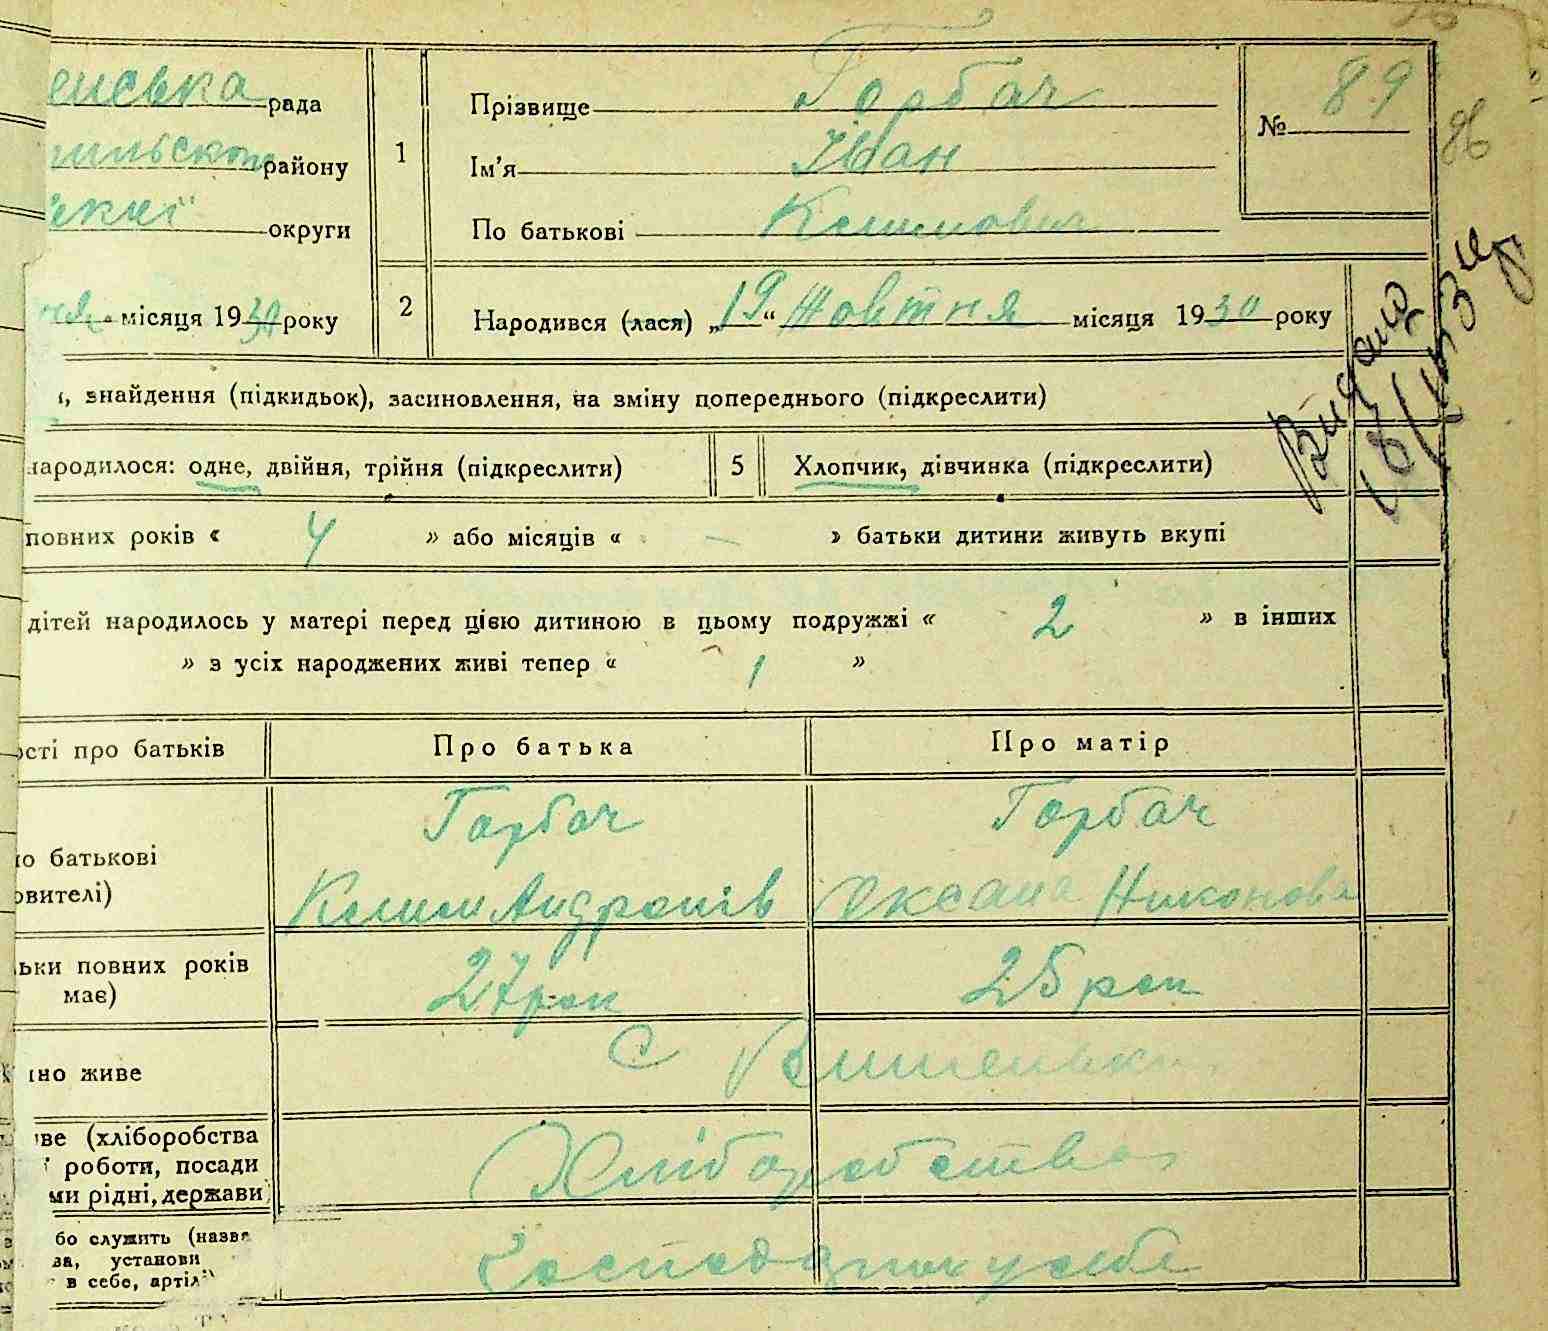 енська рада
Прізвище Горбач
№ 89
86
району
1
Ім'я Іван
округи
По батькові Климович
місяця 1930 року
2
Народився (лася) „19“ Жовтня місяця 1930 року
Видано
, знайдення (підкидьок), засиновлення, на зміну попереднього (підкреслити)
народилося: одне, двійня, трійня (підкреслити)
5
Хлопчик, дівчинка (підкреслити)
повних років « 4 » або місяців « - » батьки дитини живуть вкупі
дітей народилось у матері перед цією дитиною в цьому подружжі « 2 » в інших
» з усіх народжених живі тепер « 1 »
ості про батьків
Про батька
Про матір
Горбач
Горбач
о батькові
овителі)
Клим Андронів
Оксана Никонова
ьки повних років
має)
27 рок
25 рок
но живе
С Вишеньки
ве (хліборобства
роботи, посади
ми рідні, держави
Хліборобство
бо служить (назва
ва, установи
в себе, артіл
Господарює у себе